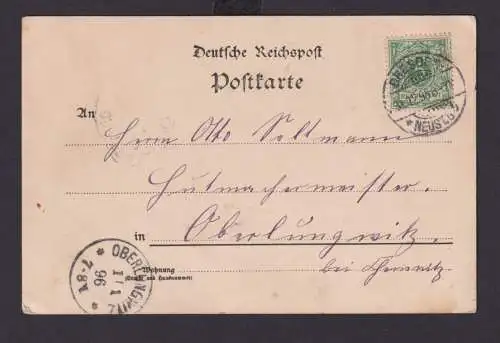 Deutsche Reichspost
Postkarte
An
Herrn Otto Soltmann
Hutmachermeister.
in Oberlungwitz.
bei Chemnitz
Wohnung
(Straße und Hausnummer)
DRESDEN
NEUST.
OBERLUNGWITZ
1/1
96
7-8V